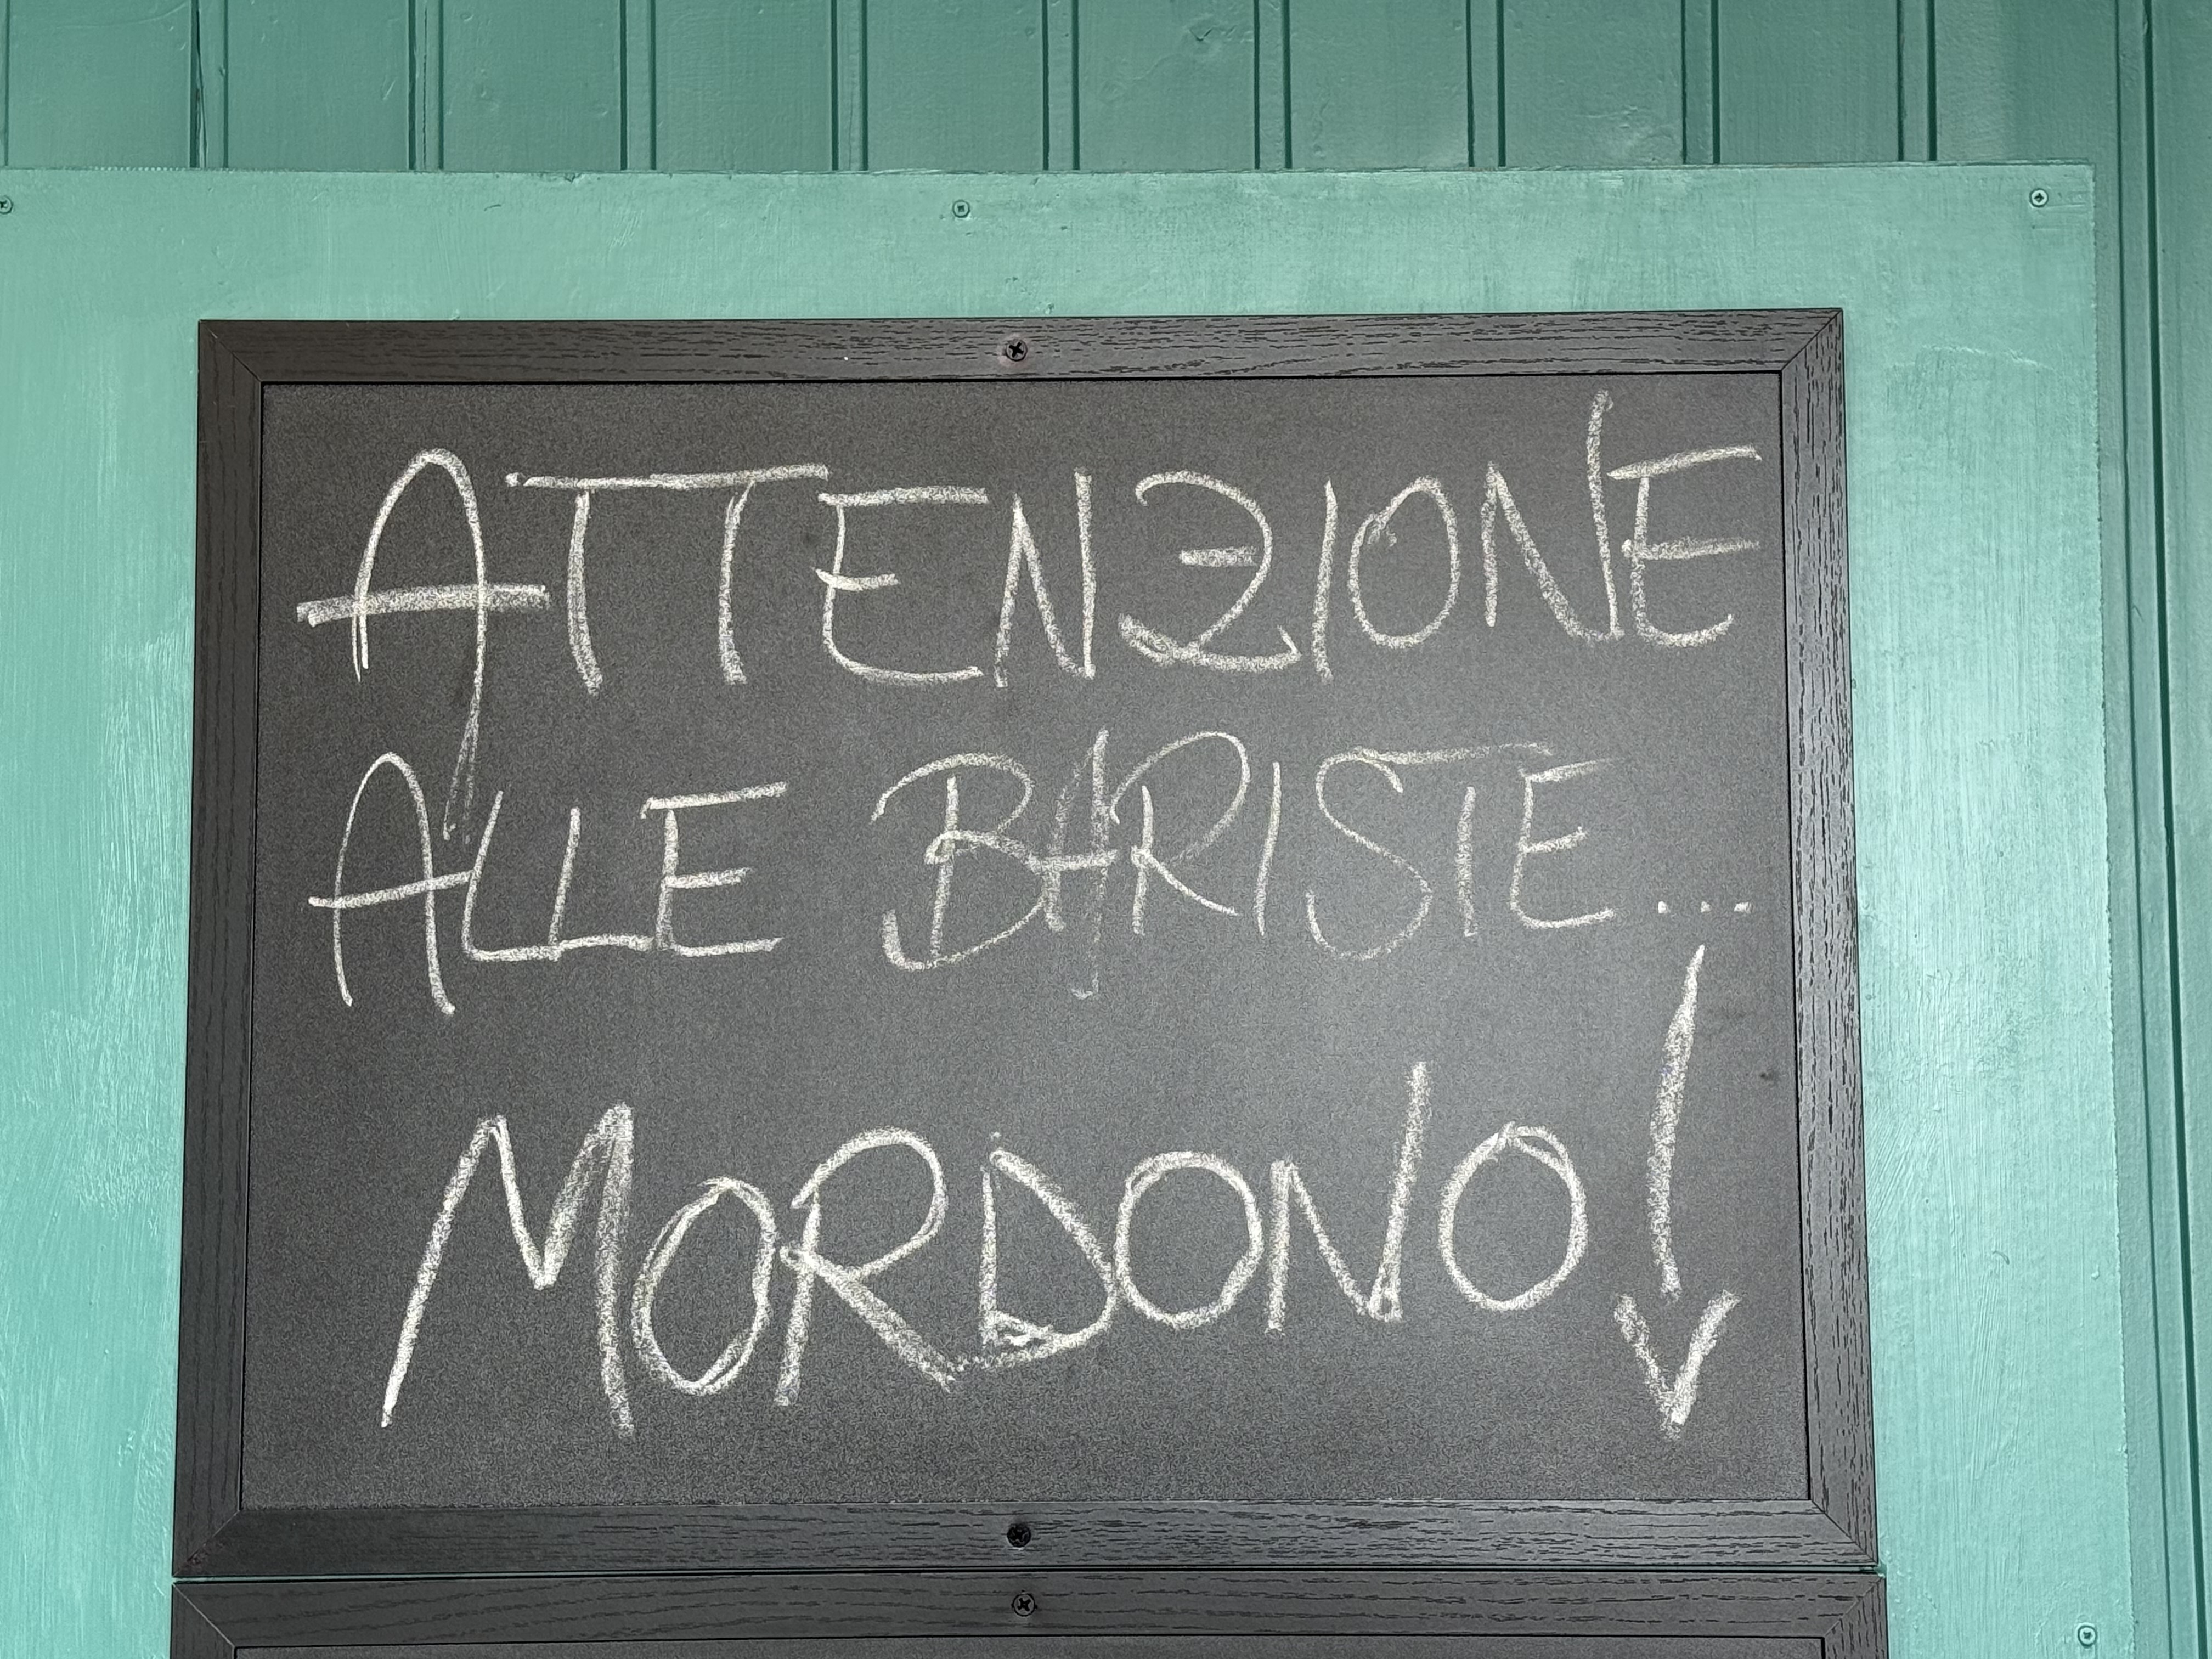 ATTENZIONE
ALLE BARISTE...
MORDONO